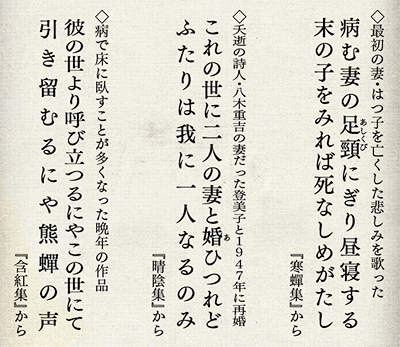 ◇最初の妻・はつ子を亡くした悲しみを歌った
病む妻の足頸にぎり昼寝する
末の子をみれば死なしめがたし
『寒蟬集』から
◇夭逝の詩人・八木重吉の妻だった登美子と1947年に再婚
これの世に二人の妻と婚ひつれど
ふたりは我に一人なるのみ
『晴陰集』から
◇病で床に臥すことが多くなった晩年の作品
彼の世より呼び立つるにやこの世にて
引き留むるにや熊蟬の声
『含紅集』から